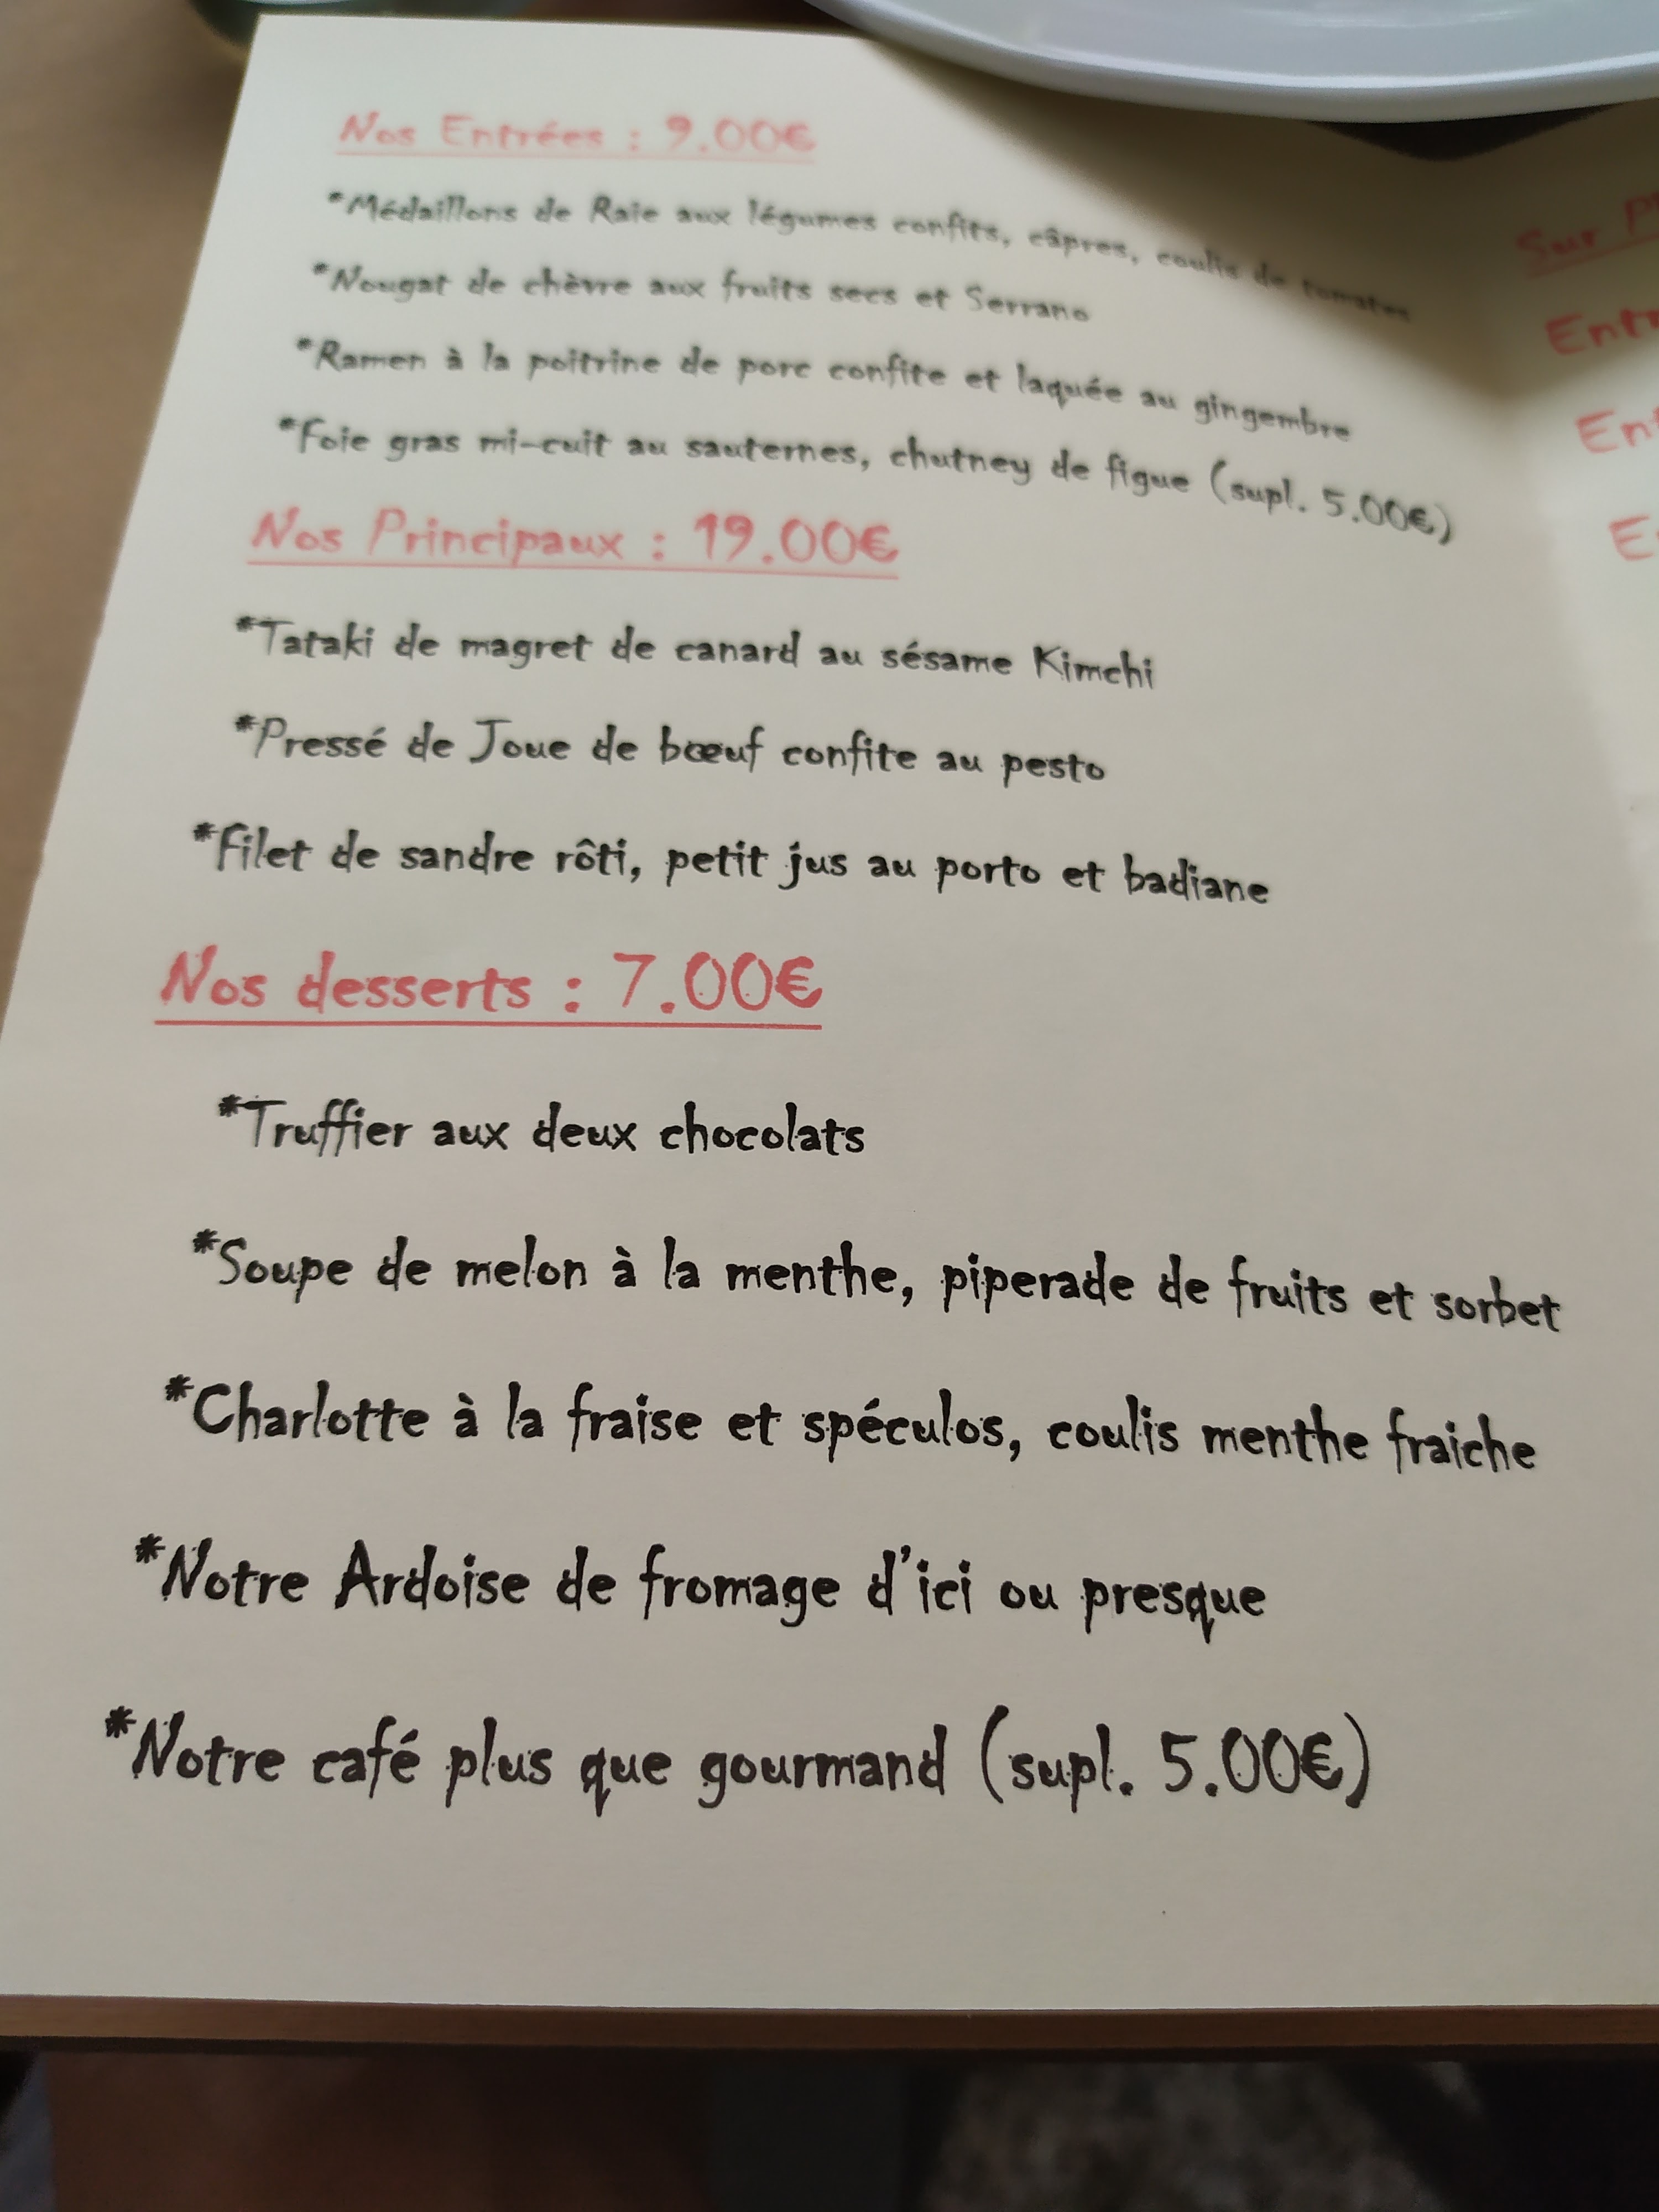 Nos Entrées : 9.00€
*Médaillons de Raie aux légumes confits, câpres, coulis de tomates
*Nougat de chèvre aux fruits secs et Serrano
*Ramen à la poitrine de porc confite et laquée au gingembre
*Foie gras mi-cuit au sauternes, chutney de figue (supl. 5.00€)
Nos Principaux : 19.00€
*Tataki de magret de canard au sésame Kimchi
*Pressé de Joue de bœuf confite au pesto
*Filet de sandre rôti, petit jus au porto et badiane
Nos desserts : 7.00€
*Truffier aux deux chocolats
*Soupe de melon à la menthe, piperade de fruits et sorbet
*Charlotte à la fraise et spéculos, coulis menthe fraiche
*Notre Ardoise de fromage d'ici ou presque
*Notre café plus que gourmand (supl. 5.00€)
Sur